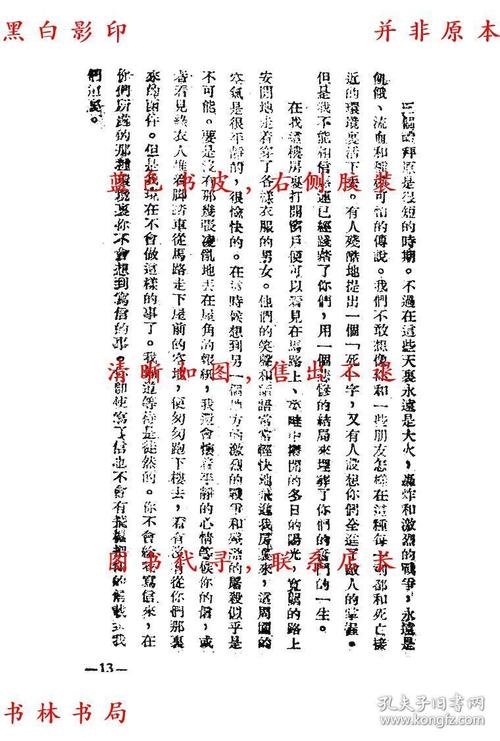 黑白影印
并非原本
三個禮拜原是很短的時期。不過在這些天裏永遠是大火，轟炸和激烈的戰爭，永遠是
飢餓、流血和種種可怕的傳說。我們不敢想像你和一些朋友怎樣在這種每一刻都和死亡接
近的環境裏活下來。有人殘酷地提出一個「死」字，又有人設想你們全進了敵人的掌握。
但是我不能相信惡運已經踐踏了你們，用一個悲慘的結局來埋葬了你們的奮鬥的一生。
在我這樓房裏打開窗戶便可以看見在馬路上、畦中攤開的冬日的陽光，寬闊的路上
安閒地走着穿了各樣衣服的男女。他們的笑聲和語常常輕快地飛進我房裏來，這周圍的
空氣是很平靜的，很愉快的。在這時候想到另一個地方的激烈的戰爭和殘酷的屠殺似乎是
不可能。要是沒有那幾張凌亂地丟在屋角的報紙，我還會懷着平靜的心情等候你的信，或
者看見綠衣人推着脚踏車從馬路走下屋前的空地，便匆匆跑下樓去，看有沒有從你們那裏
來的函件。但是我現在不會做這樣的事了。我知道等待是徒然的。你不會給我寫信來，在
你們所處的那種環境裏你不會想到寫信的事。卽使寫了信也不會有把你的載到我
們這裏。
蓝色书皮，右侧胶装
清晰如图，售出不退
图书代寻，联系店长
—13—
书林书局
孔夫子旧书网